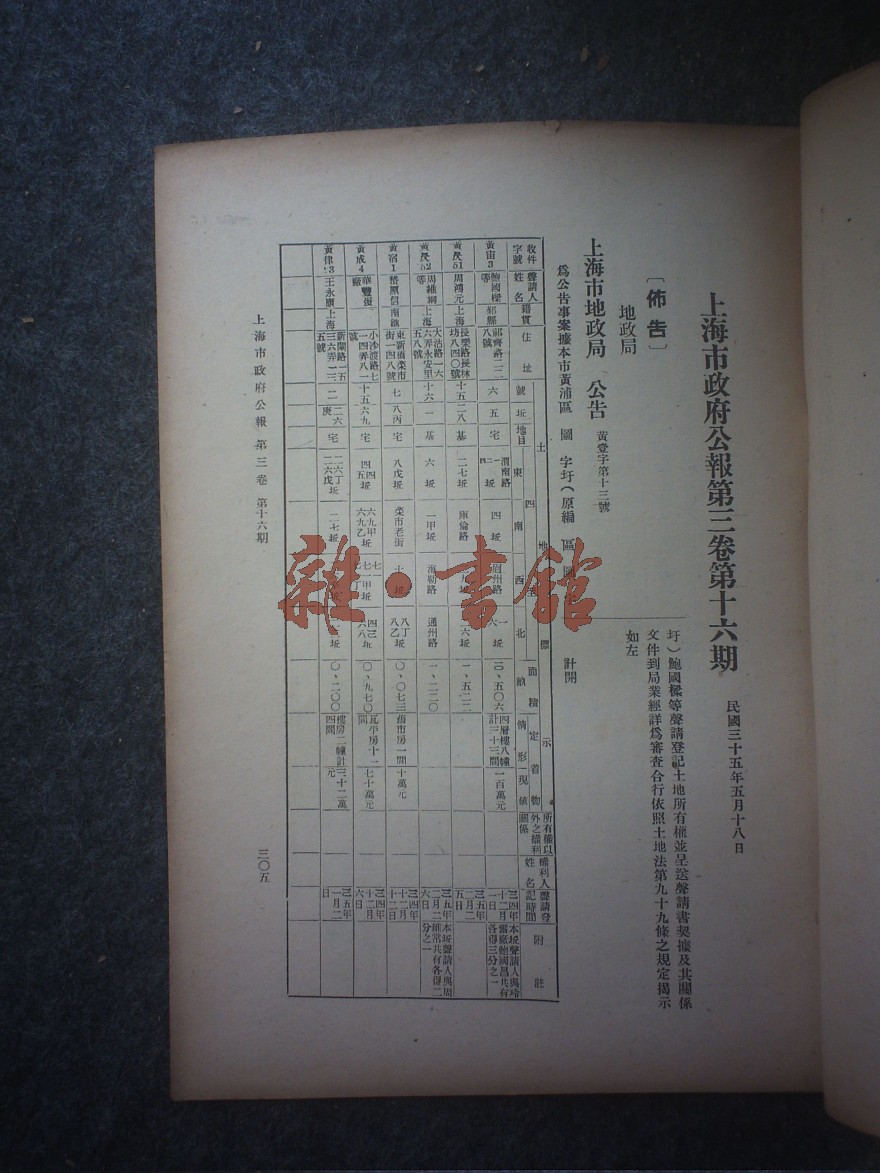 上海市政府公報第三卷第十六期
民國三十五年五月十八日
〔佈告〕
地政局
上海市地政局 公告 黃壹字第十三號
為公告事案據本市黃浦區 圖 字圩（原編 區 圖
圩）鮑國樑等聲請登記土地所有權並呈送聲請書契據及其關係
文件到局業經詳為審查合行依照土地法第九十九條之規定揭示
如左
計開
收件字號 聲請人姓名 籍貫 住址 土地標示 號 坵 地目 四至 東 南 西 北 面積 畝 定着物 情形 現値 所有權以外之權利關係 權利人姓名 聲請登記時間 附註
黃宙3 鮑國樑等 鄞縣 八號 六 五 宅 渭南路 四坵 眉州路 一 六坵 四層樓八幢計三十三間 一百萬元 三四年十二月一日 各得三分之一
黃戾51 周鴻元 上海 長樂路長林坊八四〇號 十五 二八 基 二七坵 庫倫路 二六坵 一、五二二 三五年二月二五日
黃戾52 周維綱等 上海 大沽路一六六弄永安里五八號 十六 一 基 六坵 一甲坵 海勒路 通州路 一、二二〇 三五年二月二六日 本坵聲請人與周維常共有各得二分之一
黃宿1 南匯 東新橋榮市街一四八號 七 八丙 宅 八戊坵 榮市老街 七坵 八丁 八乙坵 〇、〇七三 舊市房一間 十萬元 三四年十二月十二日
黃成4 華豐搪廠 小沙渡路七一四弄八一號 十五 六九 宅 四四 四五坵 六九甲 六九乙坵 〇、九七〇 瓦平房十一間 七十萬元 三四年十二月六日
黃律13 王永康 上海 新閘路一五三六弄一三五號 二 二六庚 宅 二六丁 二六戊坵 二七坵 〇、二〇〇 樓房二幢計四間 三十二萬元 三五年一月二日
上海市政府公報 第三卷 第十六期
三〇五
雜·書館